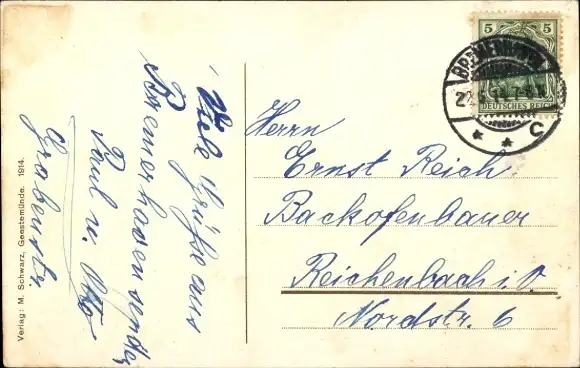 Viele Grüße aus
Bremerhaven sendet
Paul u. Otto
Verlag: M. Schwarz, Geestemünde. 1914.
5 5
DEUTSCHES REICH
BREMERHAVEN
C
Herrn
Ernst Reich
Backofenbauer
Reichenbach i. V.
Nordstr. 6